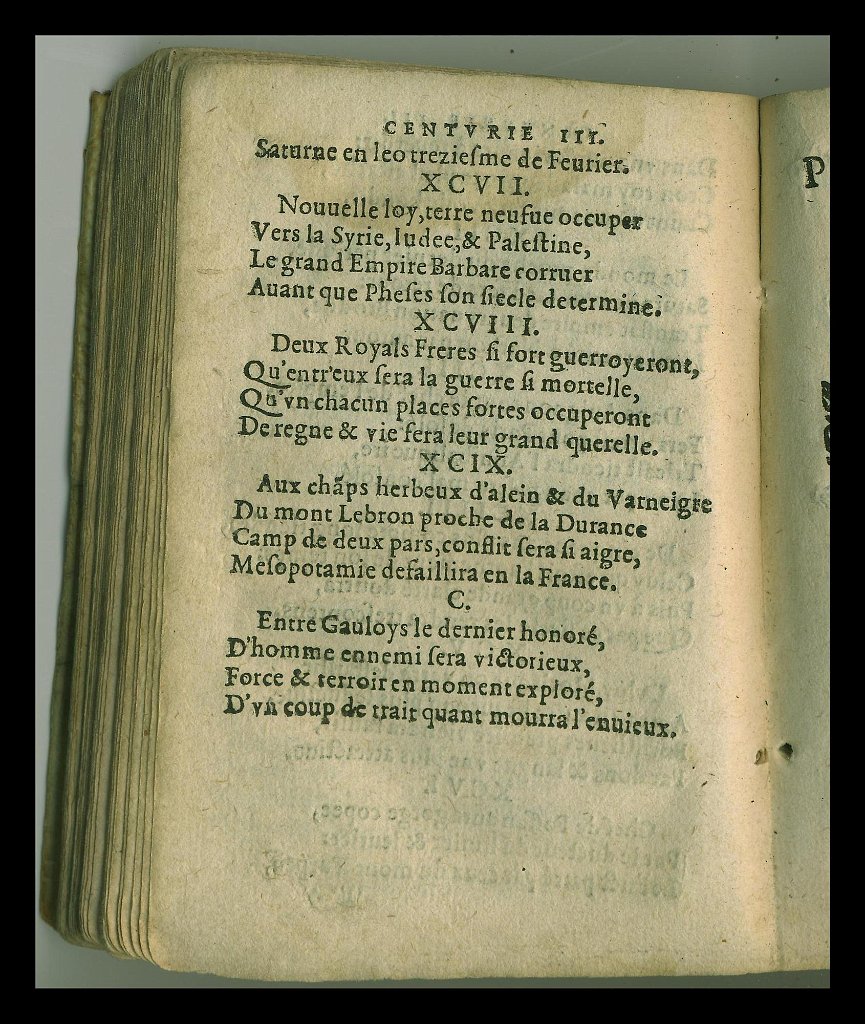 CENTVRIE III.
Saturne en leo treziesme de Feurier.
XCVII.
Nouuelle loy, terre neufue occuper
Vers la Syrie, Iudee, & Paleſtine,
Le grand Empire Barbare corruer
Auant que Pheſes ſon ſiecle determine.
XCVIII.
Deux Royals Freres ſi fort guerroyeront,
Qu'entr'eux ſera la guerre ſi mortelle,
Qu'vn chacun places fortes occuperont
De regne & vie ſera leur grand querelle.
XCIX.
Aux chãps herbeux d'alein & du Varneigre
Du mont Lebron proche de la Durance
Camp de deux pars, conflit ſera ſi aigre,
Meſopotamie defaillira en la France.
C.
Entre Gauloys le dernier honoré,
D'homme ennemi ſera victorieux,
Force & terroir en moment exploré,
D'vn coup de trait quant mourra l'enuieux.
P